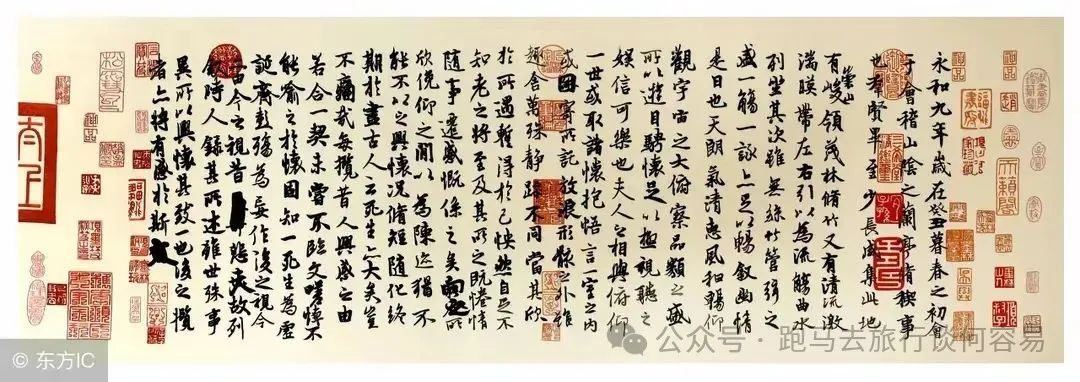 永和九年歲在癸丑暮春之初會
于會稽山陰之蘭亭脩稧事
也羣賢畢至少長咸集此地
有崇山峻領茂林脩竹又有清流激
湍暎帶左右引以為流觴曲水
列坐其次雖無絲竹管弦之
盛一觴一詠亦足以暢敘幽情
是日也天朗氣清惠風和暢仰
觀宇宙之大俯察品類之盛
所以遊目騁懷足以極視聽之
娛信可樂也夫人之相與俯仰
一世或取諸懷抱悟言一室之內
或因寄所託放浪形骸之外雖
趣舍萬殊静躁不同當其欣
於所遇蹔得於己怏然自足不
知老之將至及其所之既惓情
隨事遷感慨係之矣向之所
欣俛仰之閒以為陳迹猶不
能不以之興懷況脩短隨化終
期於盡古人云死生亦大矣豈
不痛哉每攬昔人興感之由
若合一契未嘗不臨文嗟悼不
能喻之於懷固知一死生為虛
誕齊彭殤為妄作後之視今
亦由今之視昔悲夫故列
敘時人錄其所述雖世殊事
異所以興懷其致一也後之攬
者亦將有感於斯文
© 东方IC
公众号 · 跑马去旅行谈何容易